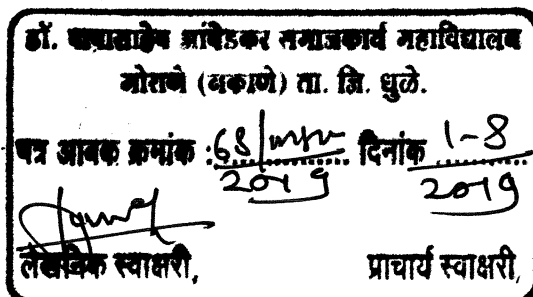 डॉ. बाबासाहेब आंबेडकर समाजकार्य महाविद्यालय
मोराणे (लकाणे) ता. जि. धुळे.
पत्र आवक क्रमांक : 68/ दिनांक 1-8
2019 2019
लेखनिक स्वाक्षरी, प्राचार्य स्वाक्षरी,